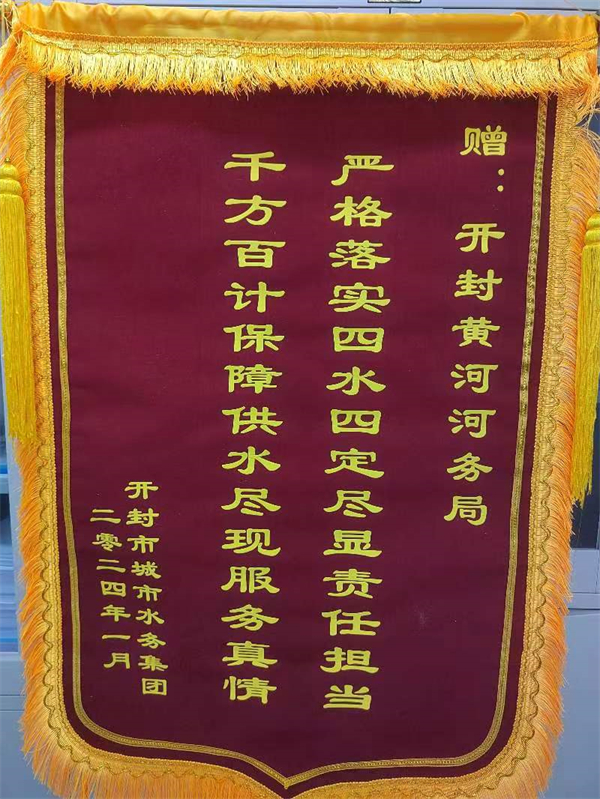 赠：开封黄河河务局
严格落实四水四定尽显责任担当
千方百计保障供水尽现服务真情
开封市城市水务集团
二零二四年一月